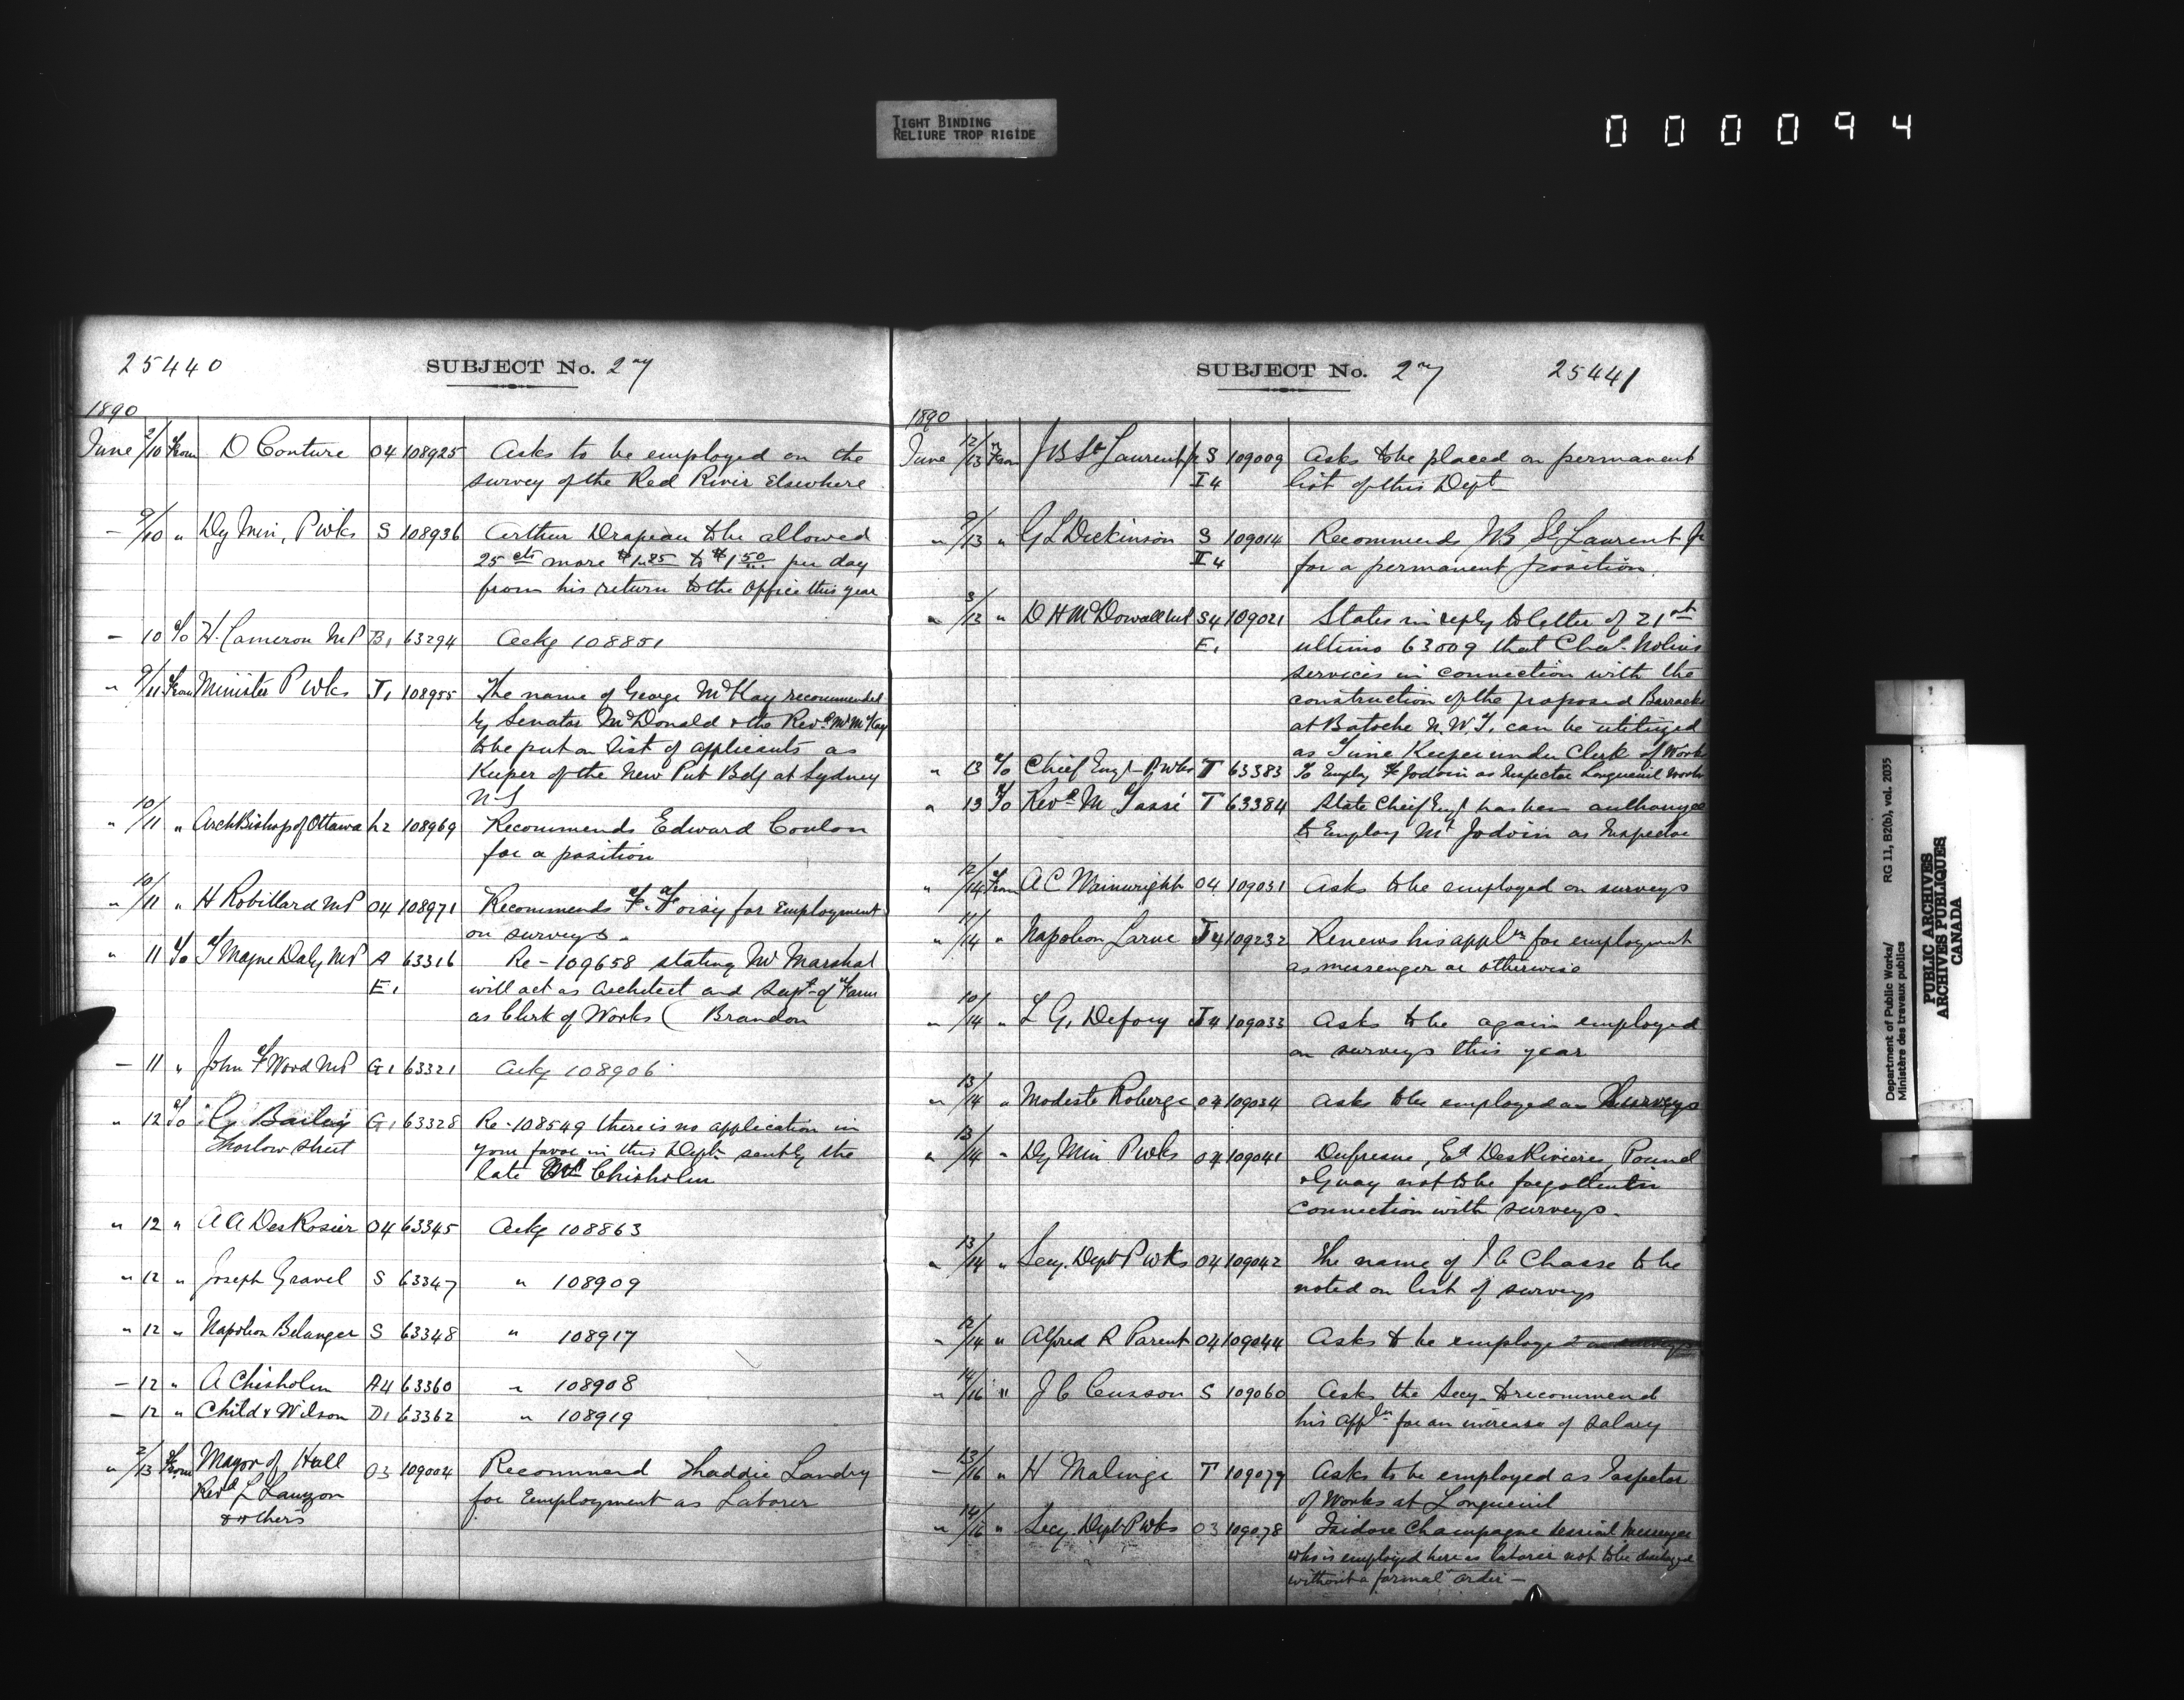 TIGHT BINDING
RELIURE TROP RIGIDE
000094
25440 SUBJECT No. 27
1890
June 2/10 From D Couture O4 108925 Asks to be employed on the
survey of the Red River Elsewhere
— 9/10 " Dy Min, P Wks S 108936 Arthur Drapeau to be allowed
25 cts more $1.25 to $1.50 per day
from his return to the Office this year
— 10 To H. Cameron MP B1 63294 Ackg 108851
" 9/11 From Minister P Wks J1 108955 The name of George McKay recommended
by Senator McDonald & the Revd Mr McKay
to be put on list of applicants as
Keeper of the New Pub Bdg at Sydney
N S
" 10/11 " ArchBishop of Ottawa L2 108969 Recommends Edward Coulon
for a position
" 10/11 " H Robillard MP O4 108971 Recommends F. Foisy for Employment
on surveys.
" 11 To T Mayne Daly MP A 63316 Re - 109658 stating Mr Marshal
E1 will act as Architect and Supt. of Farm
as Clerk of Works ( Brandon
— 11 " John F Wood MP G1 63321 Ackg 108906
" 12 To G. Bailey G1 63328 Re - 108549 there is no application in
Thorlow Street your favor in this Dept sent by the
late Chisholm
" 12 " A A DesRosier O4 63345 Ackg 108863
" 12 " Joseph Gravel S 63347 " 108909
" 12 " Napoleon Belanger S 63348 " 108917
— 12 " A Chisholm A4 63360 " 108908
— 12 " Child & Wilson D1 63362 " 108919
" 2/13 From Mayor of Hull O3 109004 Recommend Thaddie Landry
Revd L Lauzon for Employment as Laborer
& others
SUBJECT No. 27 25441
1890
June 12/13 From J B St Laurent jr S 109009 Asks to be placed on permanent
I4 list of this Dept
" 9/13 " G L Dickinson S 109014 Recommends JB St Laurent Jr
I4 for a permanent position.
" 3/13 " D H McDowall MP S4 109021 States in reply to letter of 21st
E1 ultimo 63009 that Chas. Nolins
services in connection with the
construction of the proposed Barracks
at Batoche N.W.T. can be utilized
as Time Keeper under Clerk of Works
" 13 To Chief Engr P Wks T 63383 To Employ F Jodoin as Inspector Longueuil Works
" 13 To Revd M Tassé T 63384 State Chief Engr has been authorized
to Employ Mr Jodoin as Inspector
" 12/14 From A C Wainwright O4 109031 Asks to be employed on surveys
" 11/14 " Napoleon Larue J4 109232 Renews his appln for employment
as messenger or otherwise
" 10/14 " L G, Defoy J4 109033 Asks to be again employed
on surveys this year
" 13/14 " Modeste Roberge O4 109034 Asks to be employed on Surveys
" 13/14 " Dy Min P Wks O4 109041 Dufresne, Ed DesRivieres, Pound
& Guay not to be forgotten in
connection with surveys.
" 13/14 " Secy. Dept P Wks O4 109042 The name of J C Chasse to be
noted on list of surveys
" 12/14 " Alfred R Parent O4 109044 Asks to be employed
" 14/16 " J C Cusson S 109060 Asks the Secy. to recommend
his appln for an increase of salary
— 13/16 " H Malinge T 109079 Asks to be employed as Inspector
of Works at Longueuil
" 14/16 " Secy. Dept P Wks O3 109078 Isidore Champagne Messenger
who is employed here as laborer not to be discharged
without a formal order —
Department of Public Works/ RG 11, B2(b), vol. 2035
Ministère des travaux publics
PUBLIC ARCHIVES
ARCHIVES PUBLIQUES
CANADA